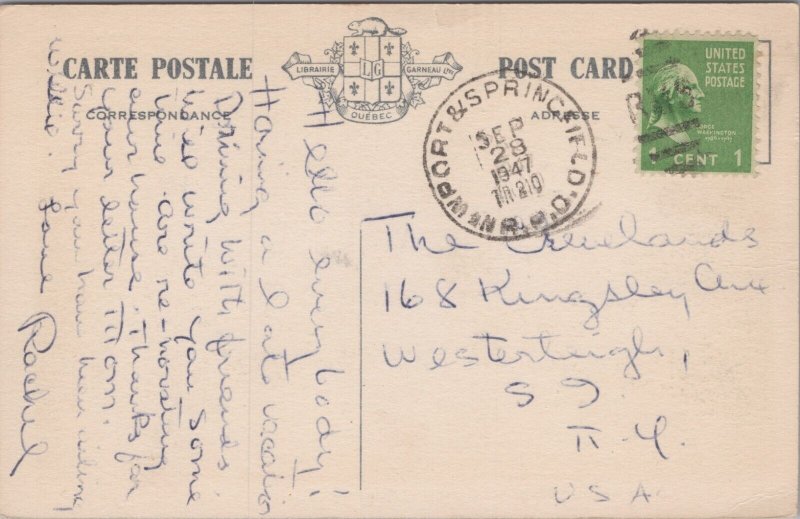 CARTE POSTALE
CORRESPONDANCE
LIBRAIRIE LG GARNEAU LTÉE
QUÉBEC
POST CARD
ADRESSE
NEWPORT & SPRINGFIELD R.P.O.
SEP
28
1947
TR 210
UNITED
STATES
POSTAGE
GEORGE
WASHINGTON
1789-1797
1 CENT 1
Hello everybody!
Having a late vacation
Driving with friends
Will write you some
time are re-novating
our house. Thanks for
your letter Mom.
Sorry you have been ailing
Willie. Love
Rachel
The Clevelands
168 Kingsley Ave
Westerleigh,
S I.
N. Y.
USA